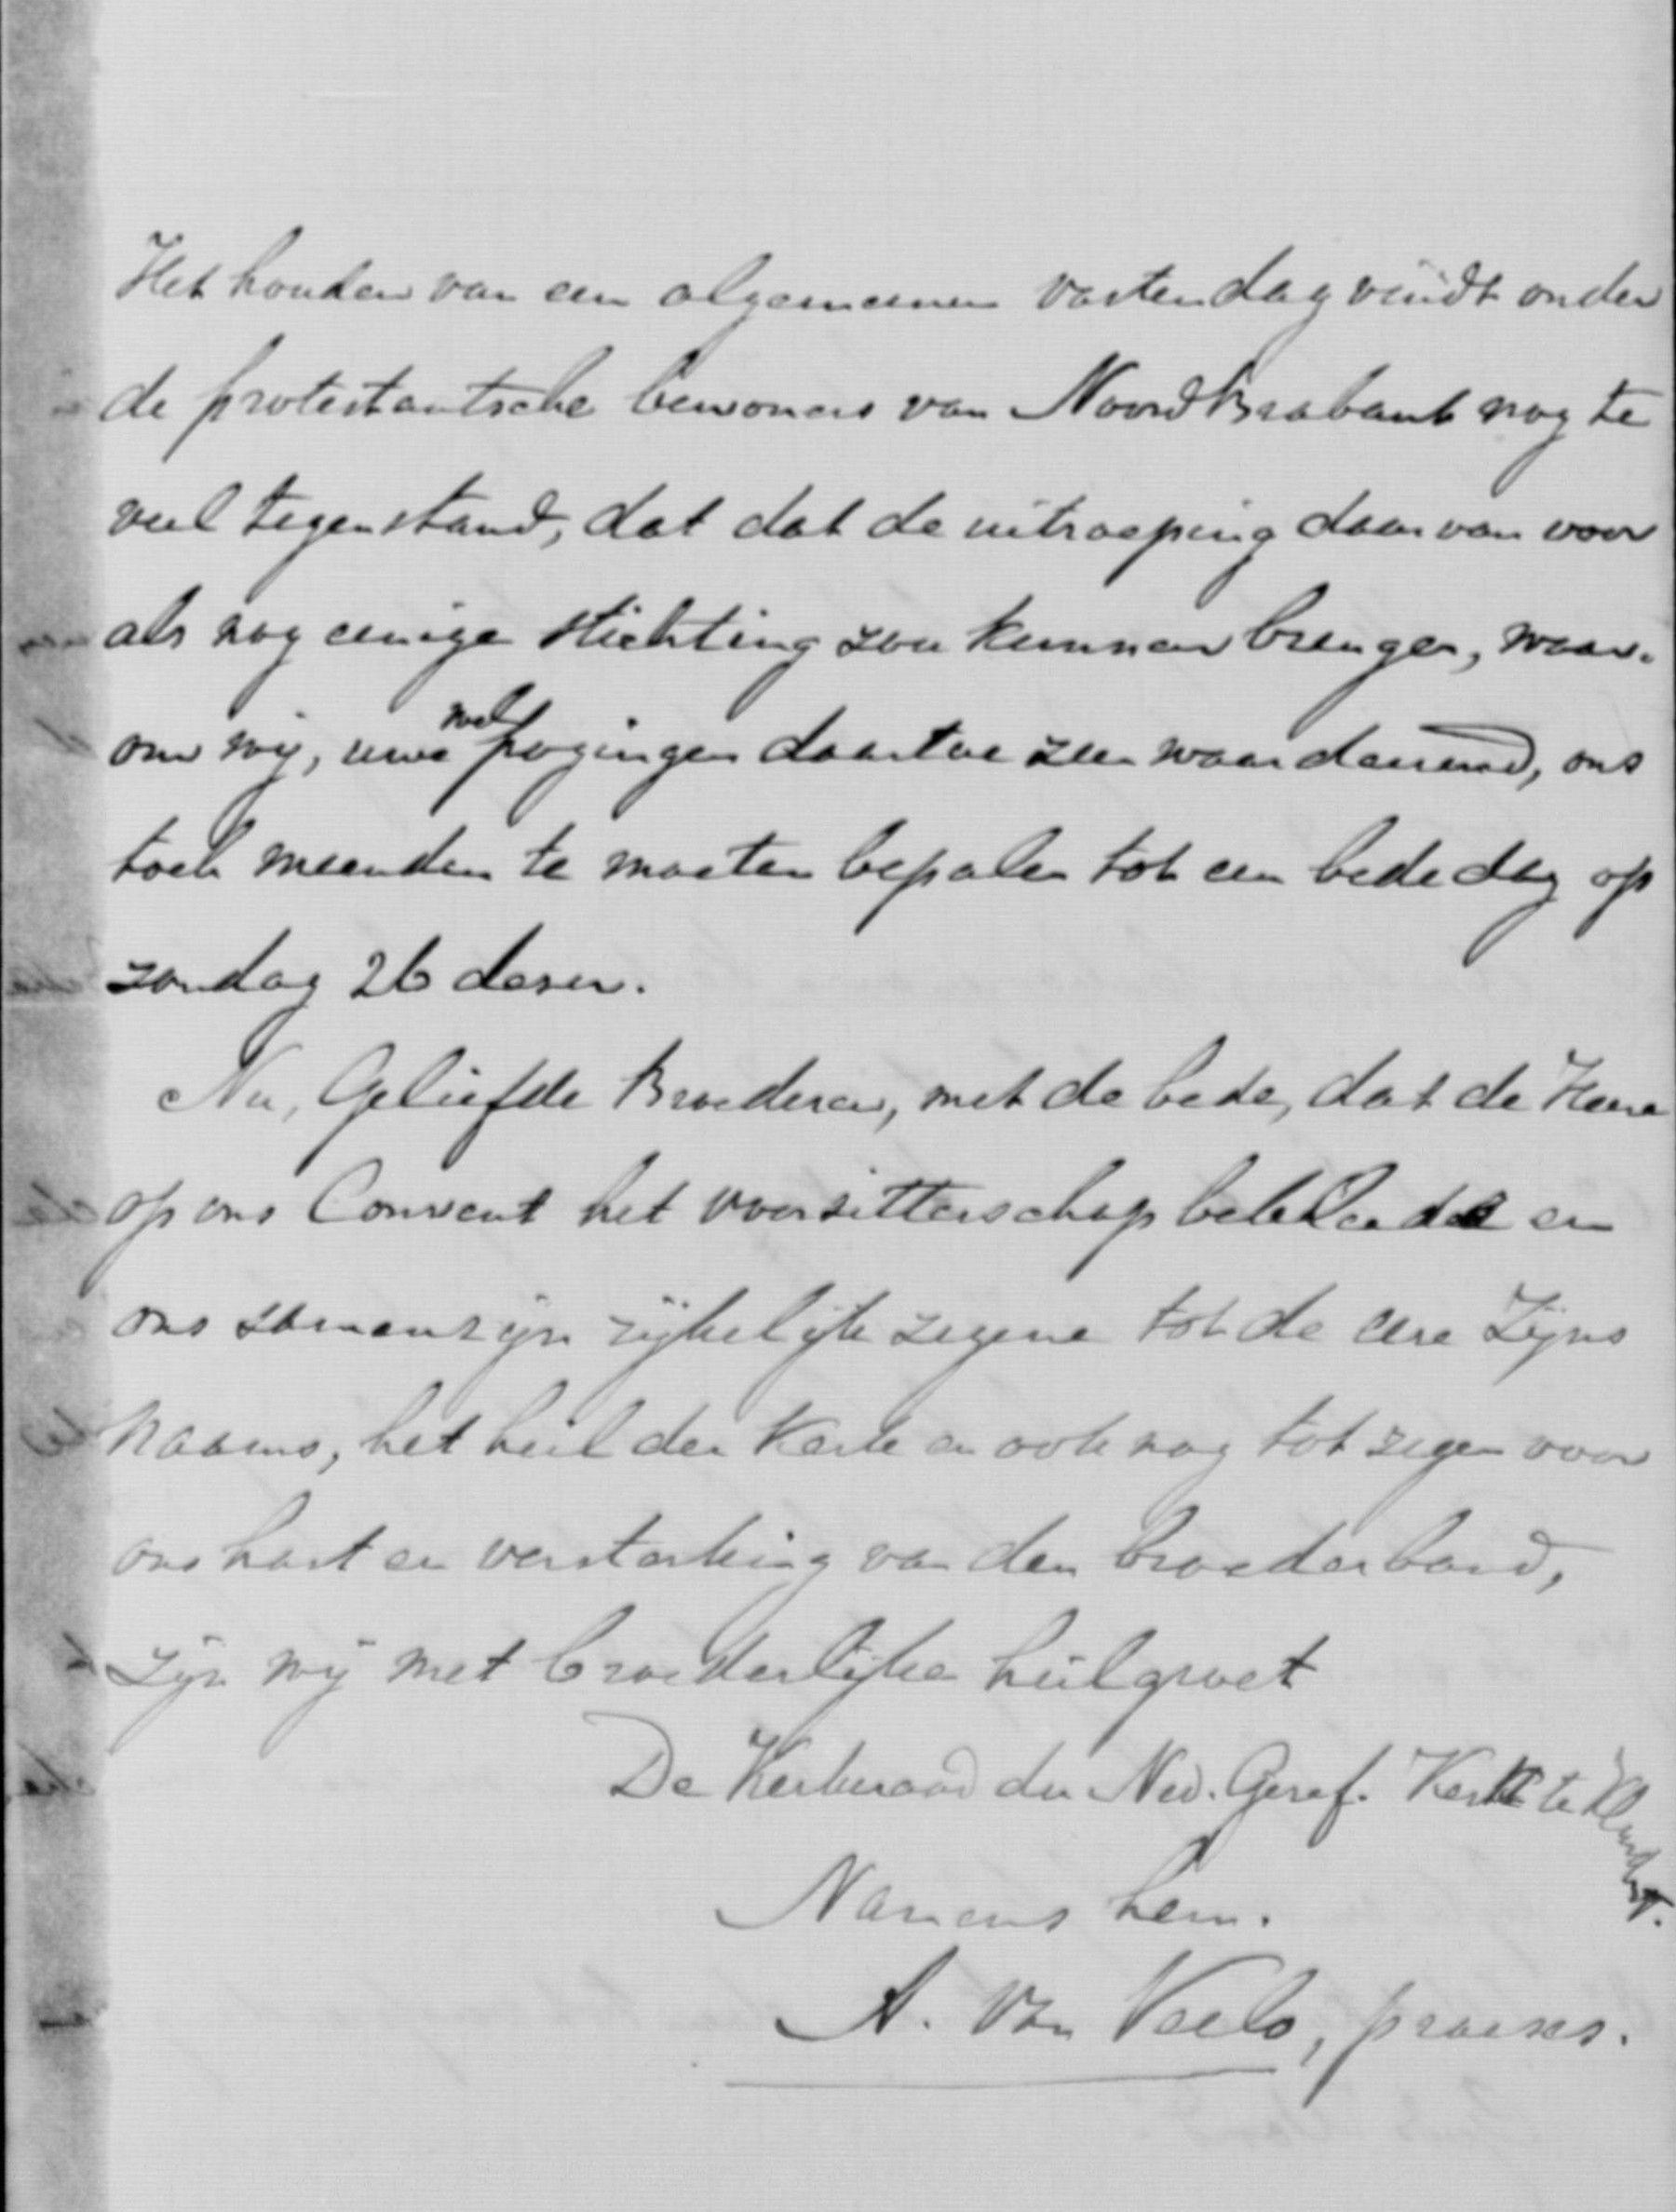 Het houden van een algemeenen vastendag vindt onder
de protestantsche bewoners van Noord Brabant nog te
veel tegenstand, dat dat de uitroeping daarvan voor
als nog eenige stichting zou kunnen brengen, waar-
om wij, uwe wel pogingen daartoe zeer waardeerend, ons
toch meenden te moeten bepalen tot een bededag op
zondag 26 dezer.
Nu, Geliefde Broederen, met de bede, dat de Heere
op ons Convent het voorzitterschap bekleede en
ons samenzijn rijkelijk zegene tot de eere Zijns
Naams, het heil der Kerk en ook nog tot zegen voor
ons hart en versterking van den broederband,
zijn wij met broederlijke heilgroet
De Kerkeraad der Ned. Geref. Kerk te Klundert.
Namens hem.
A. van Veelo, praeses.